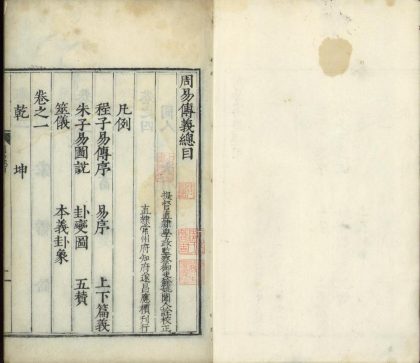 周易傳義總目
提督直隸學政監察御史餘姚聞人詮校正
直隸常州府知府遂昌應檟刊行
凡例
程子易傳序 易序 上下篇義
朱子易圖說 卦變圖 五贊
筮儀 本義卦象
卷之一
乾 坤